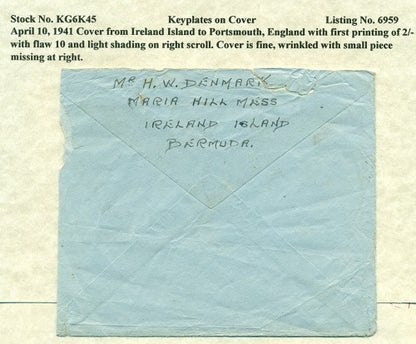 Stock No. KG6K45 Keyplates on Cover Listing No. 6959
April 10, 1941 Cover from Ireland Island to Portsmouth, England with first printing of 2/-
with flaw 10 and light shading on right scroll. Cover is fine, wrinkled with small piece
missing at right.
MR H. W. DENMARK
MARIA HILL MESS
IRELAND ISLAND
BERMUDA.